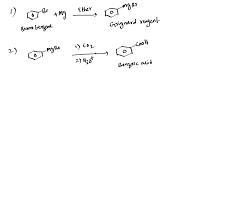 1) Br + Mg Ether → MgBr
Bromobenzene Grignard reagent
2) MgBr 1) CO2 → COOH
2) H3O⊕
Benzoic acid